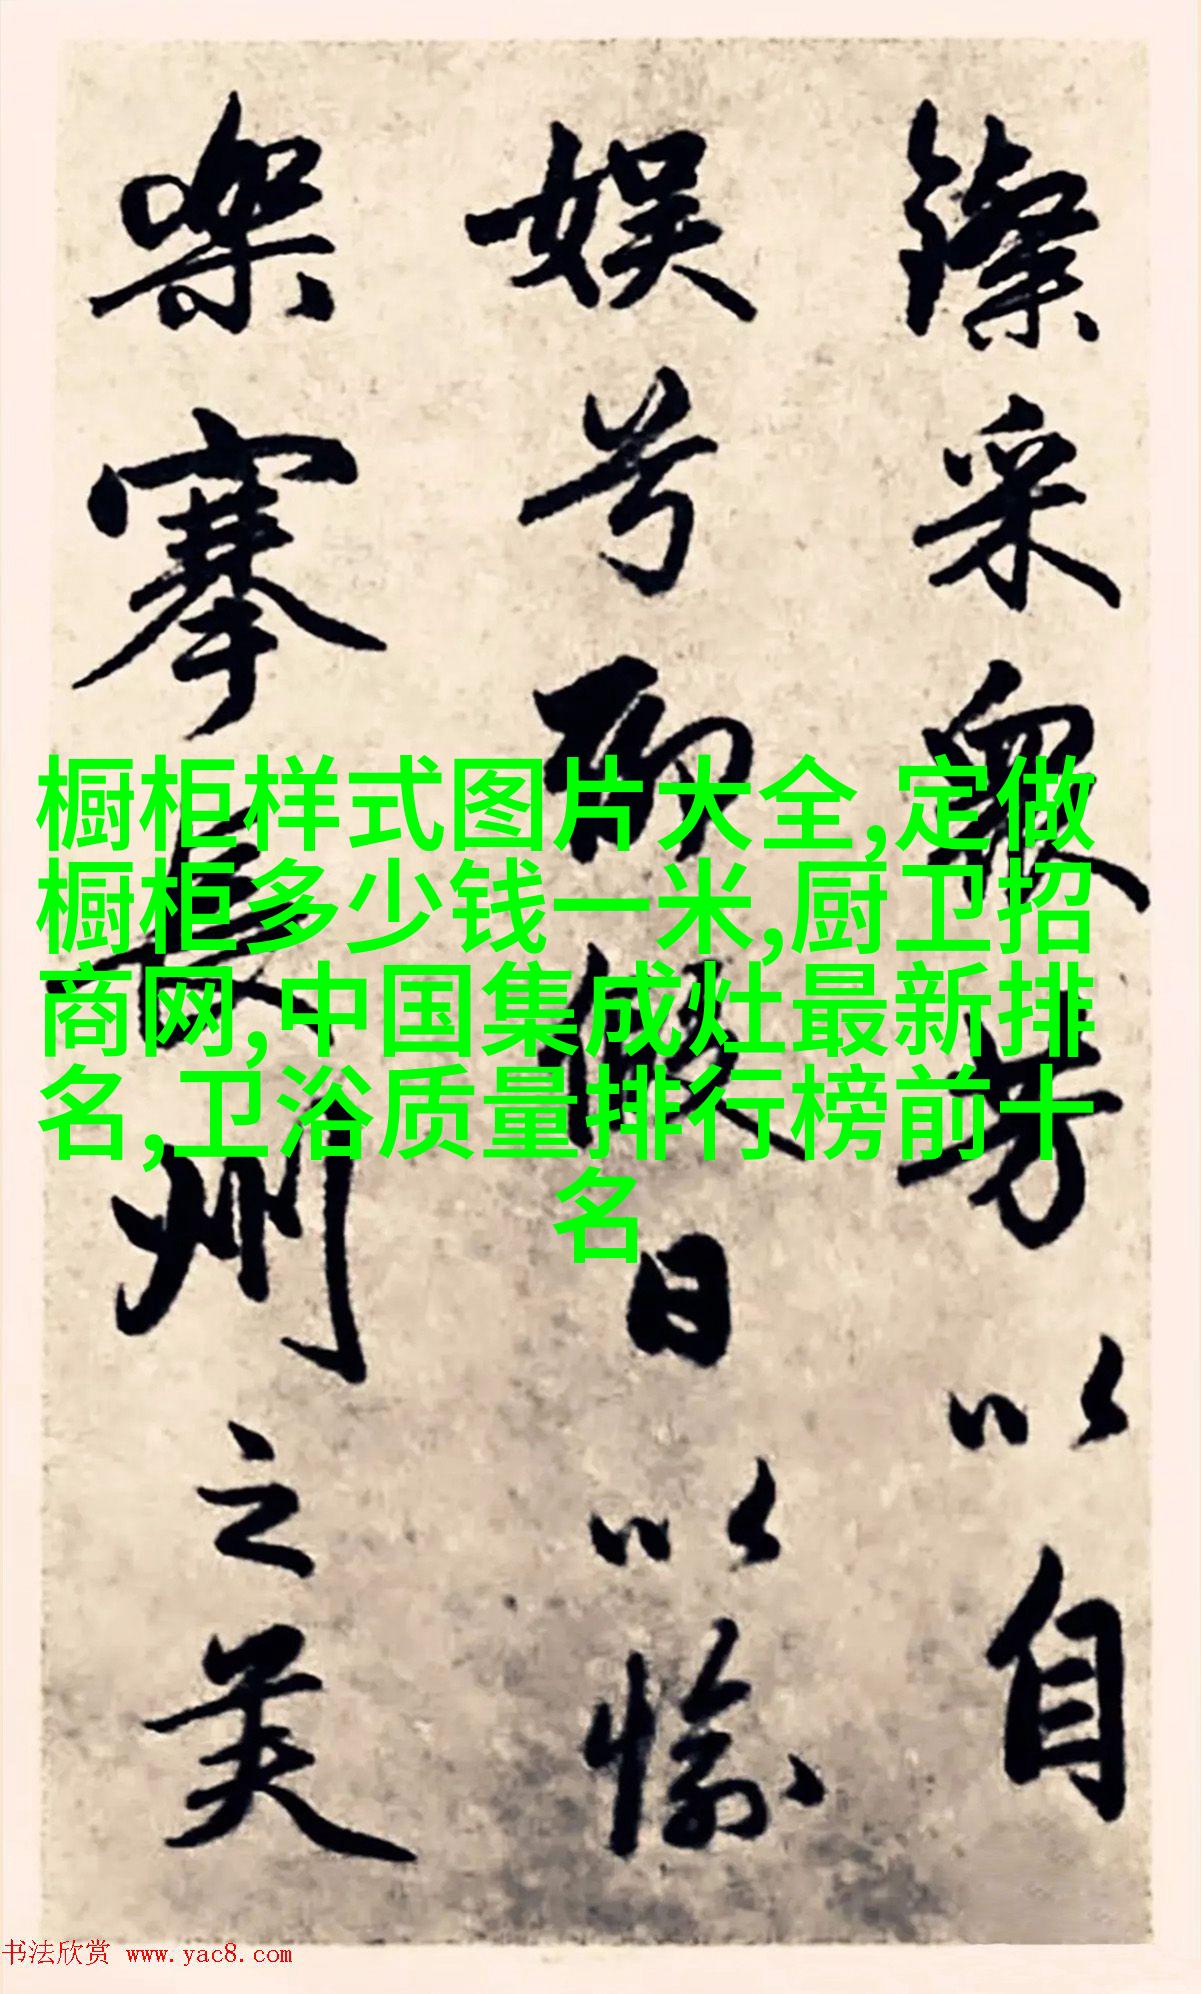 采眾芳以自
娱兮聊假日以愉
樂搴長州之
橱柜样式图片大全,定做
橱柜多少钱一米,厨卫招
商网,中国集成灶最新排
名,卫浴质量排行榜前十
名
书法欣赏 www.yac8.com